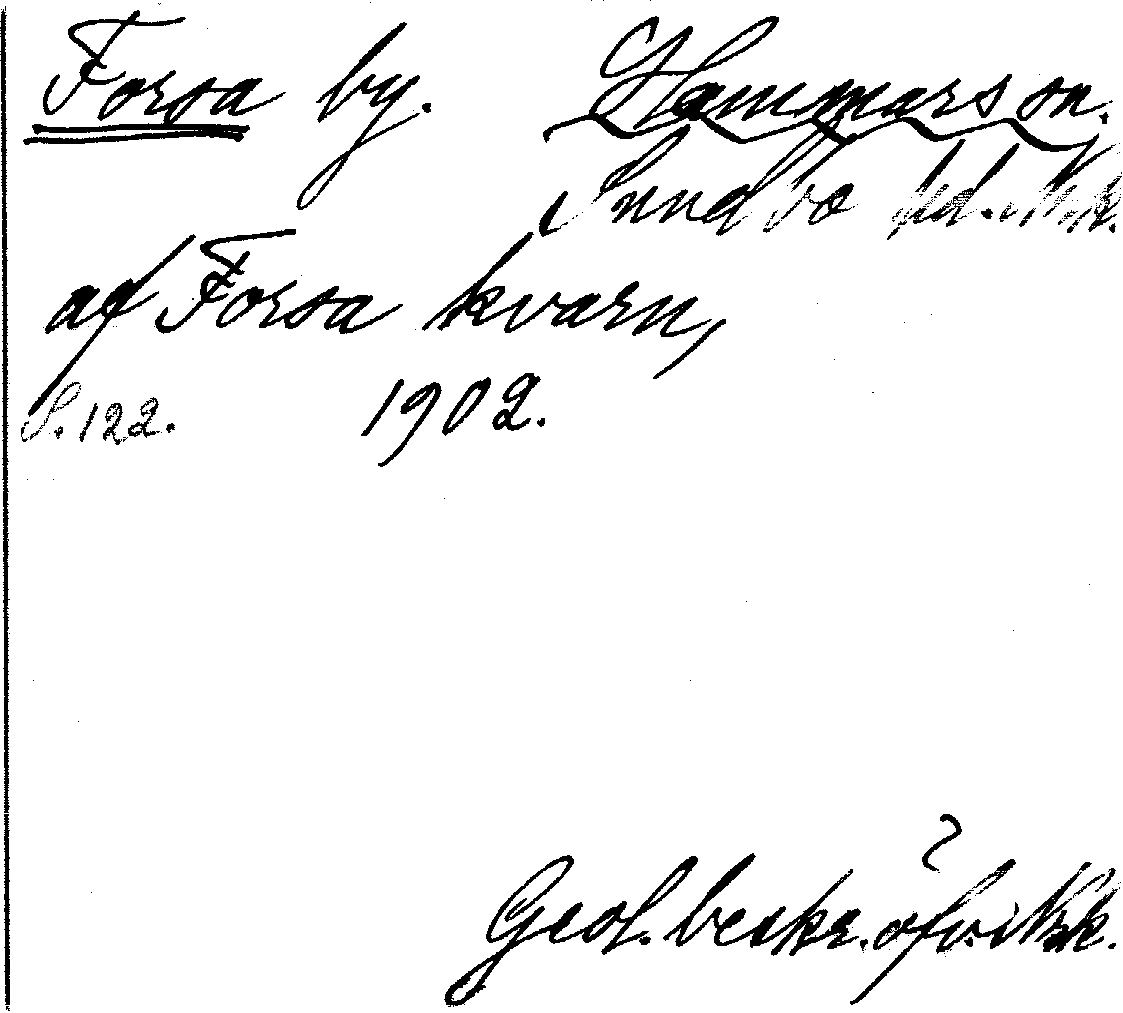 Forsa by. Hammars sn.
Sundbo hd. Nrk.
af Forsa kvarn,
S. 122. 1902.
Geol. beskr. öfv. Nrk.